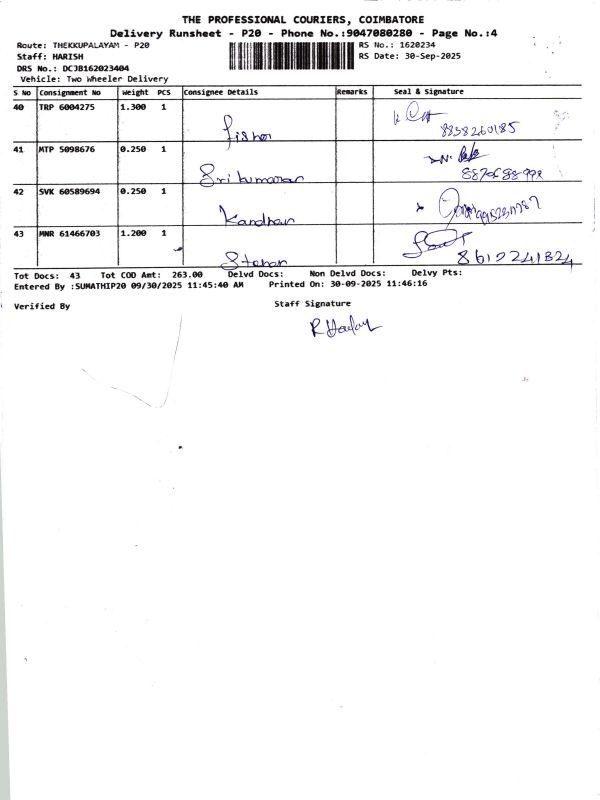 THE PROFESSIONAL COURIERS, COIMBATORE
Delivery Runsheet - P20 - Phone No.:9047080280 - Page No.:4
Route: THEKKUPALAYAM - P20 RS No.: 1620234
Staff: HARISH RS Date: 30-Sep-2025
DRS No.: DCJB162023404
Vehicle: Two Wheeler Delivery
S No Consignment No Weight PCS Consignee Details Remarks Seal & Signature
40 TRP 6004275 1.300 1
8838260185
41 MTP 5098676 0.250 1
Sri kumaran
42 SVK 60589694 0.250 1
Kandhan
43 MNR 61466703 1.200 1
86102241824
Tot Docs: 43 Tot COD Amt: 263.00 Delvd Docs: Non Delvd Docs: Delvy Pts:
Entered By :SUMATHIP20 09/30/2025 11:45:40 AM Printed On: 30-09-2025 11:46:16
Verified By Staff Signature